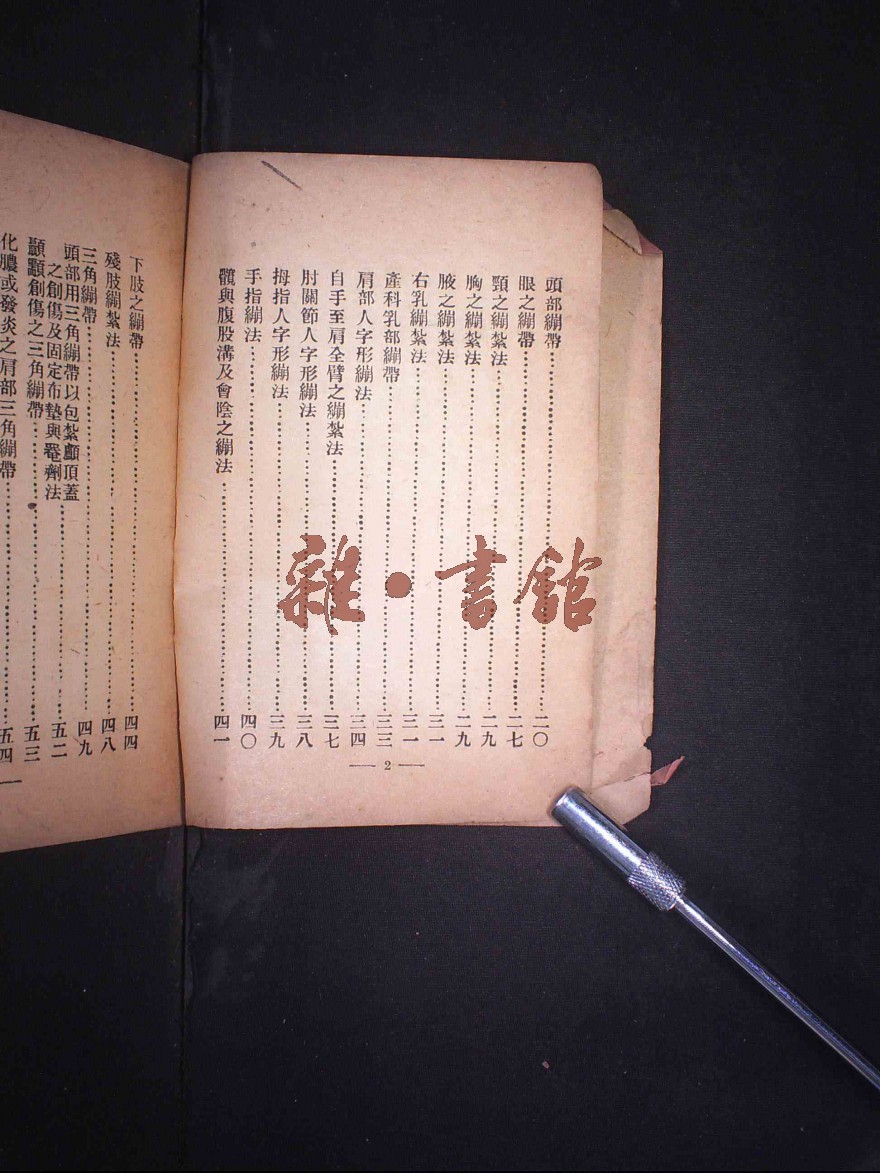 頭部繃帶……二〇
眼之繃帶……二七
頸之繃紮法……二九
胸之繃紮法……二九
腋之繃紮法……三一
右乳繃紮法……三一
產科乳部繃帶……三三
肩部人字形繃法……三四
自手至肩全臂之繃紮法……三七
肘關節人字形繃法……三八
拇指人字形繃法……三九
手指繃法……四〇
髖與腹股溝及會陰之繃法……四一
— 2 —
下肢之繃帶……四四
殘肢繃紮法……四八
三角繃帶……四九
頭部用三角繃帶以包紮顱頂蓋
之創傷及固定布墊與罨劑法……五二
顳顬創傷之三角繃帶……五三
化膿或發炎之肩部三角繃帶……五四
雜·書館